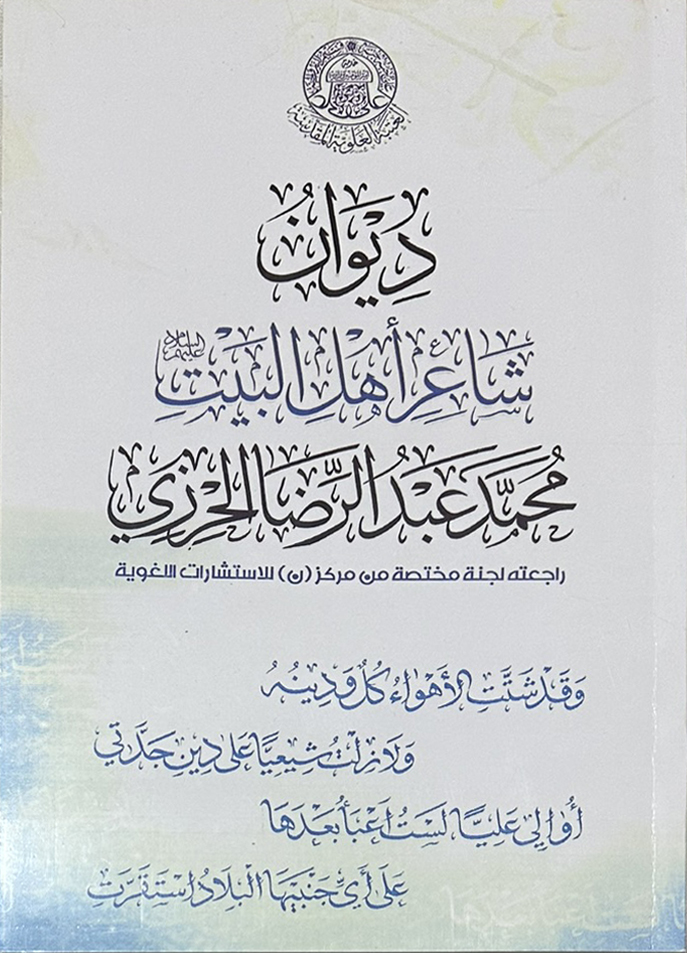 العتبة العلوية المقدسة
دِيوَانُ
شَاعِرِ أَهْلِ البَيْتِ عليهم السلام
مُحَمَّد عَبْدُ الرِّضَا الحِرْزِي
راجعته لجنة مختصة من مركز (ن) للاستشارات اللغوية
وَقَد شَتَّتِ الأَهْوَاءُ كُلٌّ وَدِينُهُ
وَلَا زِلْتُ شِيعِيًّا عَلَى دِينِ جَدَّتِي
أُوَالِي عَلِيًّا لَسْتُ أَعْبَأُ بَعْدَهَا
عَلَى أَيِّ جَنْبَيْهَا الْبِلَادُ اسْتَقَرَّتِ